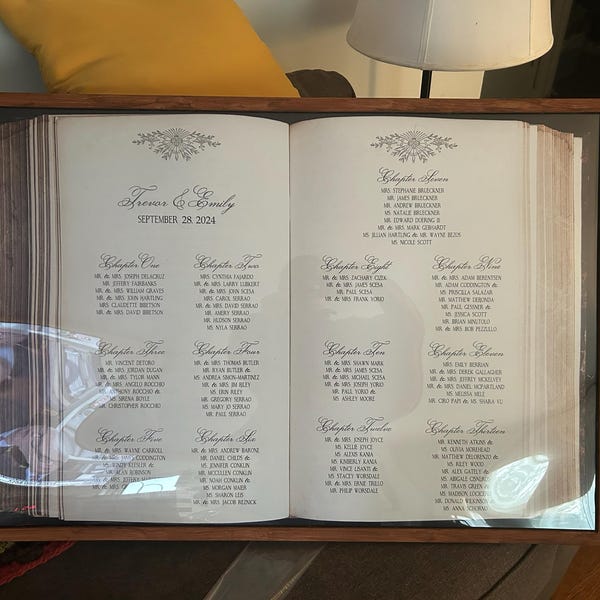 Trevor & Emily
SEPTEMBER 28, 2024
Chapter One
MR. & MRS. JOSEPH DELACRUZ
MR. JEFFERY FAIRBANKS
MR. & MRS. WILLIAM GRAVES
MR. & MRS. JOHN HARTLING
MS. CLAUDETTE IBBETSON
MR. & MRS. DAVID IBBETSON
Chapter Two
MRS. CYNTHIA FAJARDO
MR. & MRS. LARRY LUBKERT
MR. & MRS. JOHN SCESA
MRS. CAROL SERRAO
MR. & MRS. DAVID SERRAO
MR. AMERY SERRAO
MR. HUDSON SERRAO
MS. NYLA SERRAO
Chapter Three
MR. VINCENT DETORO
MR. & MRS. JORDAN DUGAN
MR. & MRS. TYLOR MANN
MR. & MRS. ANGELO ROCCHIO
MR. ANTHONY ROCCHIO &
MS. SIRENA BOYLE
MR. CHRISTOPHER ROCCHIO
Chapter Four
MR. & MRS. THOMAS BUTLER
MR. RYAN BUTLER &
MS. ANDREA SIMON-MARTINEZ
MR. & MRS. JIM RILEY
MS. ERIN RILEY
MR. GREGORY SERRAO
MS. MARY JO SERRAO
MR. PAUL SERRAO
Chapter Five
MR. & MRS. WAYNE CARROLL
MR. & MRS. JAMES CODDINGTON
MS. WENDY KEISLER &
MR. ALAN ROBINSON
MR. & MRS. JEFFREY
MR. &
Chapter Six
MR. & MRS. ANDREW BARONE
MR. DANIEL CHILDS &
MS. JENNIFER CONKLIN
MR. MCCULLEN CONKLIN
MR. NOAH CONKLIN &
MS. MORGAN MAIER
MS. SHARON LEIS
MR. & MRS. JACOB REZNICK
Chapter Seven
MRS. STEPHANIE BRUECKNER
MR. JAMES BRUECKNER
MR. ANDREW BRUECKNER
MS. NATALIE BRUECKNER
MR. EDWARD DOERING II
MR. & MRS. MARK GEBHARDT
MS. JILLIAN HARTLING & MR. WAYNE BEZUS
MS. NICOLE SCOTT
Chapter Eight
MR. & MRS. ZACHARY CIZEK
MR. & MRS. JAMES SCESA
MR. PAUL SCESA
MR. & MRS. FRANK YORIO
Chapter Nine
MR. & MRS. ADAM BERENTSEN
MR. ADAM CODDINGTON &
MS. PRISCILLA SALAZAR
MR. MATTHEW DEBONDA
MR. PAUL GESSNER &
MS. JESSICA SCOTT
MR. BRIAN MINUTOLO
MR. & MRS. BOB PEZZULLO
Chapter Ten
MR. & MRS. SHAWN MARK
MR. & MRS. JAMES SCESA
MR. & MRS. MICHAEL SCESA
MR. & MRS. JOSEPH YORIO
MR. PAUL YORIO &
MS. ASHLEY MOORE
Chapter Eleven
MS. EMILY BERRIAN
MR. & MRS. DEREK GALLAGHER
MR. & MRS. JEFFREY MCKELVEY
MR. & MRS. DANIEL MCPARTLAND
MS. MELISSA MELE
MR. CIRO PAPI & MS. SHARA VU
Chapter Twelve
MR. & MRS. JOSEPH JOYCE
MS. KELLIE JOYCE
MS. ALEXIS KANIA
MS. KIMBERLY KANIA
MR. VINCE LISANTI &
MS. STACEY WORSDALE
MR. & MRS. ERNIE TRILLO
MR. PHILIP WORSDALE
Chapter Thirteen
MR. KENNETH ATKINS &
MS. OLIVIA MOREHEAD
MR. MATTHEW DELORENZO &
MS. RILEY WOOD
MR. ALEX GATELY &
MS. ABIGAIL CISNEROS
MR. TRAVIS GREEN &
MS. MADISON LOCKER
MR. DONALD WILKINSON
MS. ANNA SCHORAO